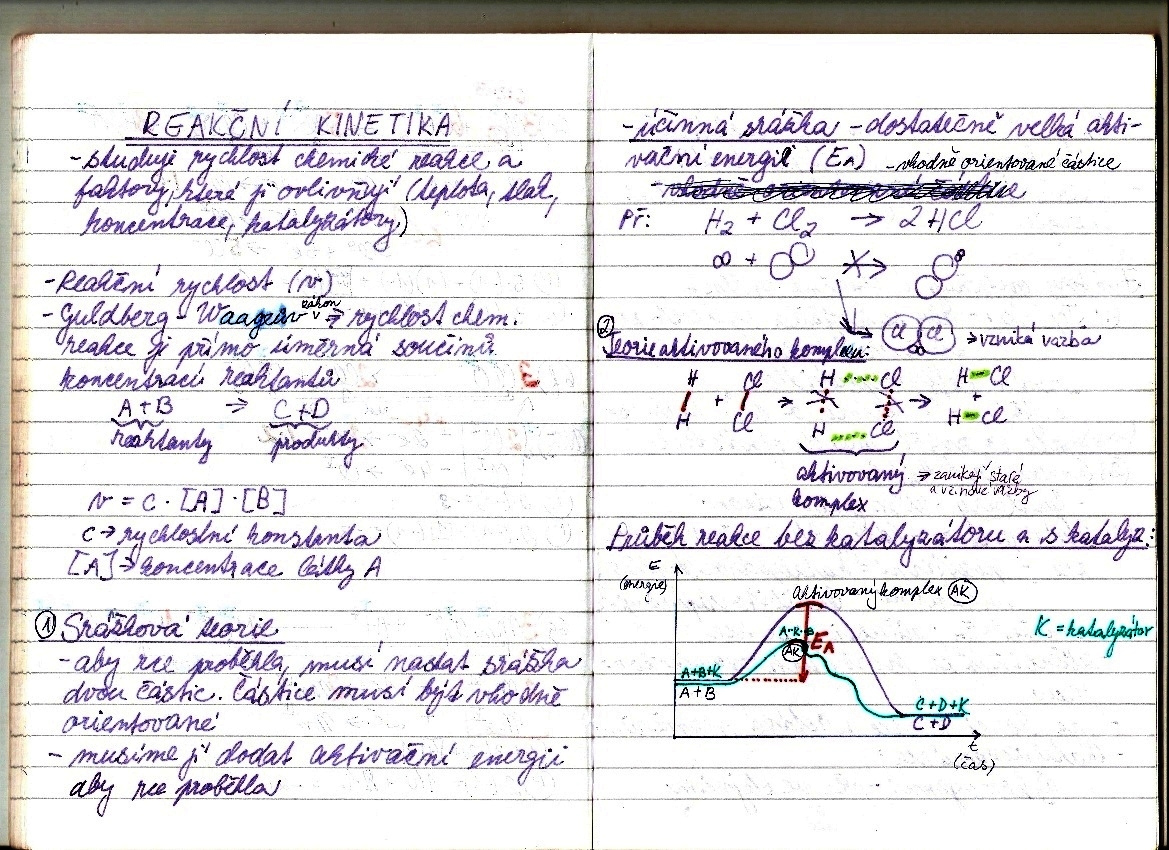 REAKČNÍ KINETIKA
- studuje rychlost chemické reakce a
faktory, které ji ovlivňují (teplota, tlak,
koncentrace, katalyzátory)
- Reakční rychlost (v)
- Guldberg - Waagův zákon v ⇒ rychlost chem.
reakce je přímo úměrná součinů
koncentrací reaktantů
A + B ⇒ C + D
reaktanty produkty
v = c · [A] · [B]
c → rychlostní konstanta
[A] → koncentrace látky A
① Srážková teorie
- aby rce proběhla, musí nastat srážka
dvou částic. Částice musí být vhodně
orientované
- musíme jí dodat aktivační energii
aby rce proběhla
- účinná srážka - dostatečně velká akti-
vační energie (EA) - vhodně orientované částice
- vhodně orientované částice
Př: H₂ + Cl₂ → 2HCl
+
Cl Cl ⇒ vzniká vazba
② Teorie aktivovaného komplexu:
H Cl H Cl H Cl
+ ⇒ → +
H Cl H Cl H Cl
aktivovaný ⇒ zanikají staré
komplex a vznikají vazby
Průběh reakce bez katalyzátoru a s katalyz.:
E
(energie)
aktivovaný komplex AK
K = katalyzátor
A·K·B
AK EA
A+B+K
A+B
C+D+K
C+D
t
(čas)